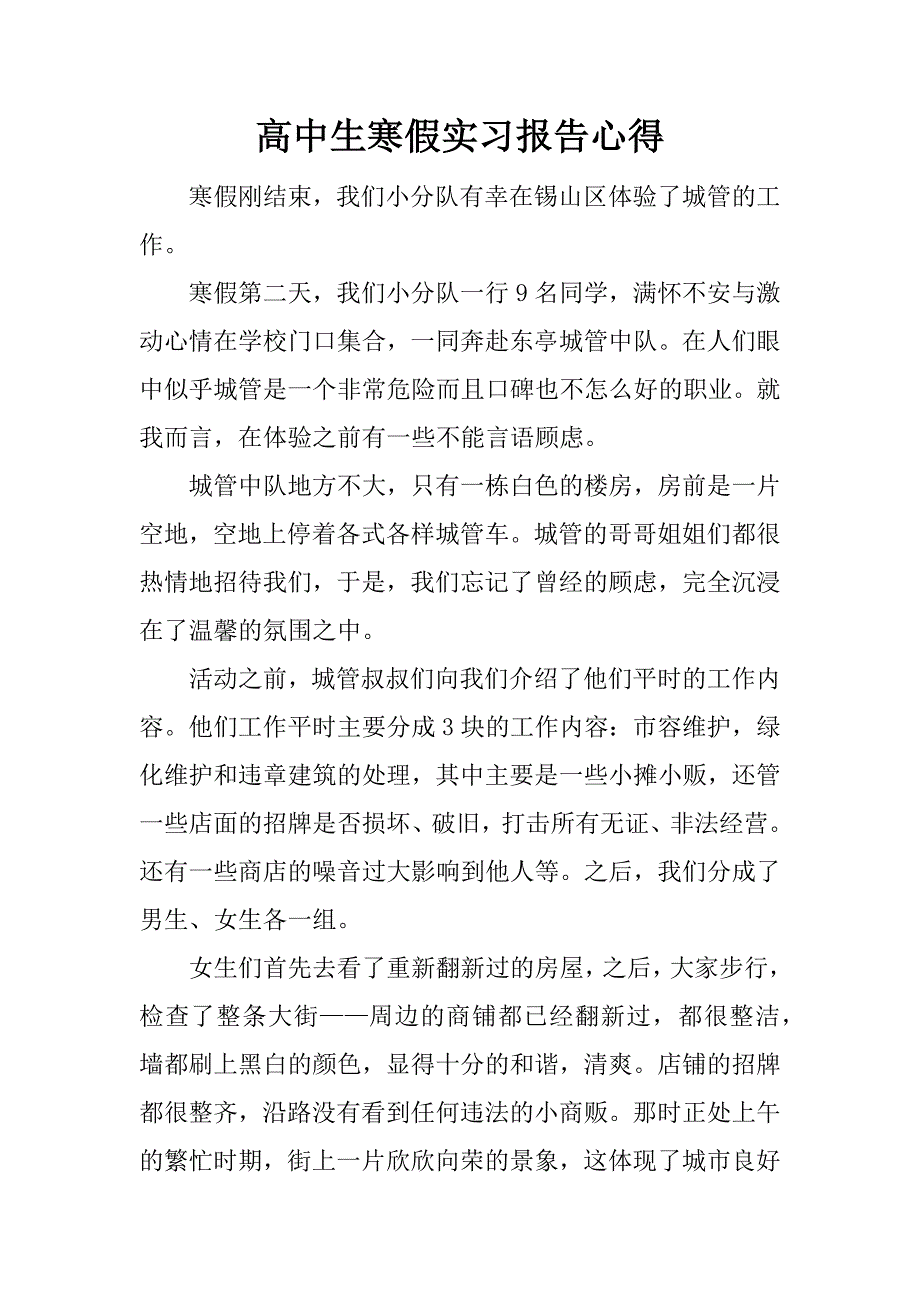 高中生寒假实习报告心得
寒假刚结束，我们小分队有幸在锡山区体验了城管的工
作。
寒假第二天，我们小分队一行 9 名同学，满怀不安与激
动心情在学校门口集合，一同奔赴东亭城管中队。在人们眼
中似乎城管是一个非常危险而且口碑也不怎么好的职业。就
我而言，在体验之前有一些不能言语顾虑。
城管中队地方不大，只有一栋白色的楼房，房前是一片
空地，空地上停着各式各样城管车。城管的哥哥姐姐们都很
热情地招待我们，于是，我们忘记了曾经的顾虑，完全沉浸
在了温馨的氛围之中。
活动之前，城管叔叔们向我们介绍了他们平时的工作内
容。他们工作平时主要分成 3 块的工作内容：市容维护，绿
化维护和违章建筑的处理，其中主要是一些小摊小贩，还管
一些店面的招牌是否损坏、破旧，打击所有无证、非法经营。
还有一些商店的噪音过大影响到他人等。之后，我们分成了
男生、女生各一组。
女生们首先去看了重新翻新过的房屋，之后，大家步行，
检查了整条大街——周边的商铺都已经翻新过，都很整洁，
墙都刷上黑白的颜色，显得十分的和谐，清爽。店铺的招牌
都很整齐，沿路没有看到任何违法的小商贩。那时正处上午
的繁忙时期，街上一片欣欣向荣的景象，这体现了城市良好